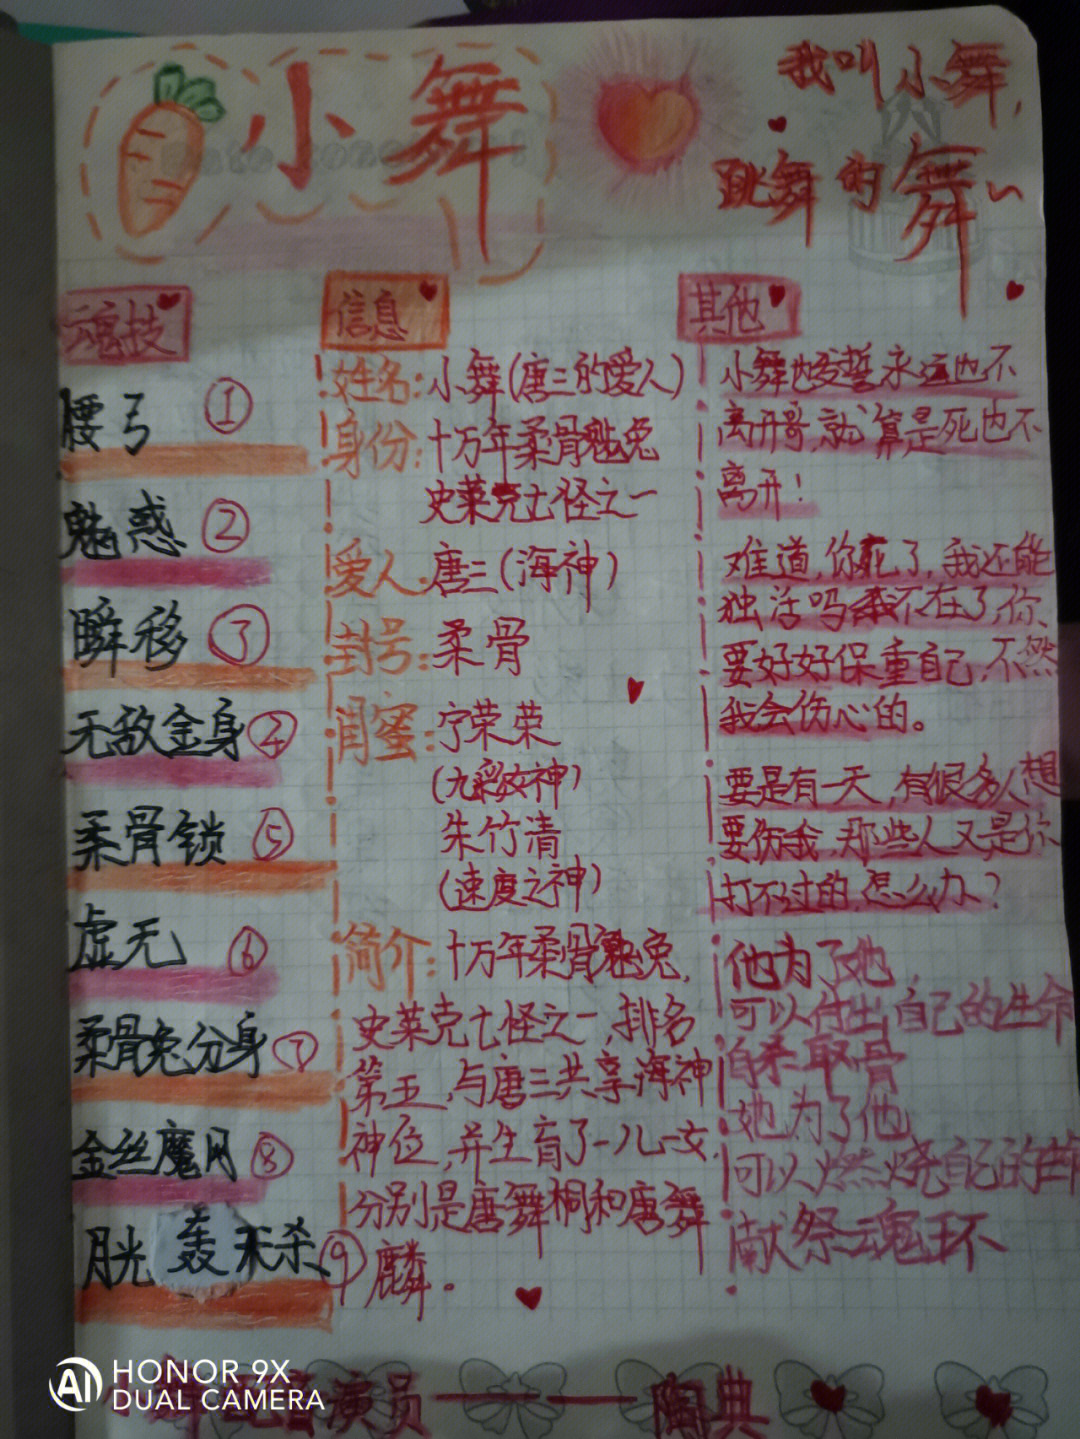 小舞
我叫小舞,
跳舞的舞~
魂技
腰弓 ①
魅惑 ②
瞬移 ③
无敌金身 ④
柔骨锁 ⑤
虚无 ⑥
柔骨兔分身 ⑦
金丝魔网 ⑧
月光轰天杀 ⑨
信息
姓名:小舞(唐三的爱人)
身份:十万年柔骨魅兔
史莱克七怪之一
爱人:唐三(海神)
封号:柔骨
闺蜜:宁荣荣
(九彩女神)
朱竹清
(速度之神)
简介:十万年柔骨魅兔,
史莱克七怪之一,排名
第五,与唐三共享海神
神位,并生育了一儿一女,
分别是唐舞桐和唐舞
麟。
其他
小舞也发誓永远也不
离开哥,就算是死也不
离开!
难道,你死了,我还能
独活吗我不在了,你
要好好保重自己,不然
我会伤心的。
要是有一天,有很多人想
要伤我,那些人又是你
打不过的,怎么办?
他为了她
可以付出自己的生命
自杀取骨
她为了他
可以燃烧自己的
献祭魂环
舞配音演员——陶典
HONOR 9X
DUAL CAMERA